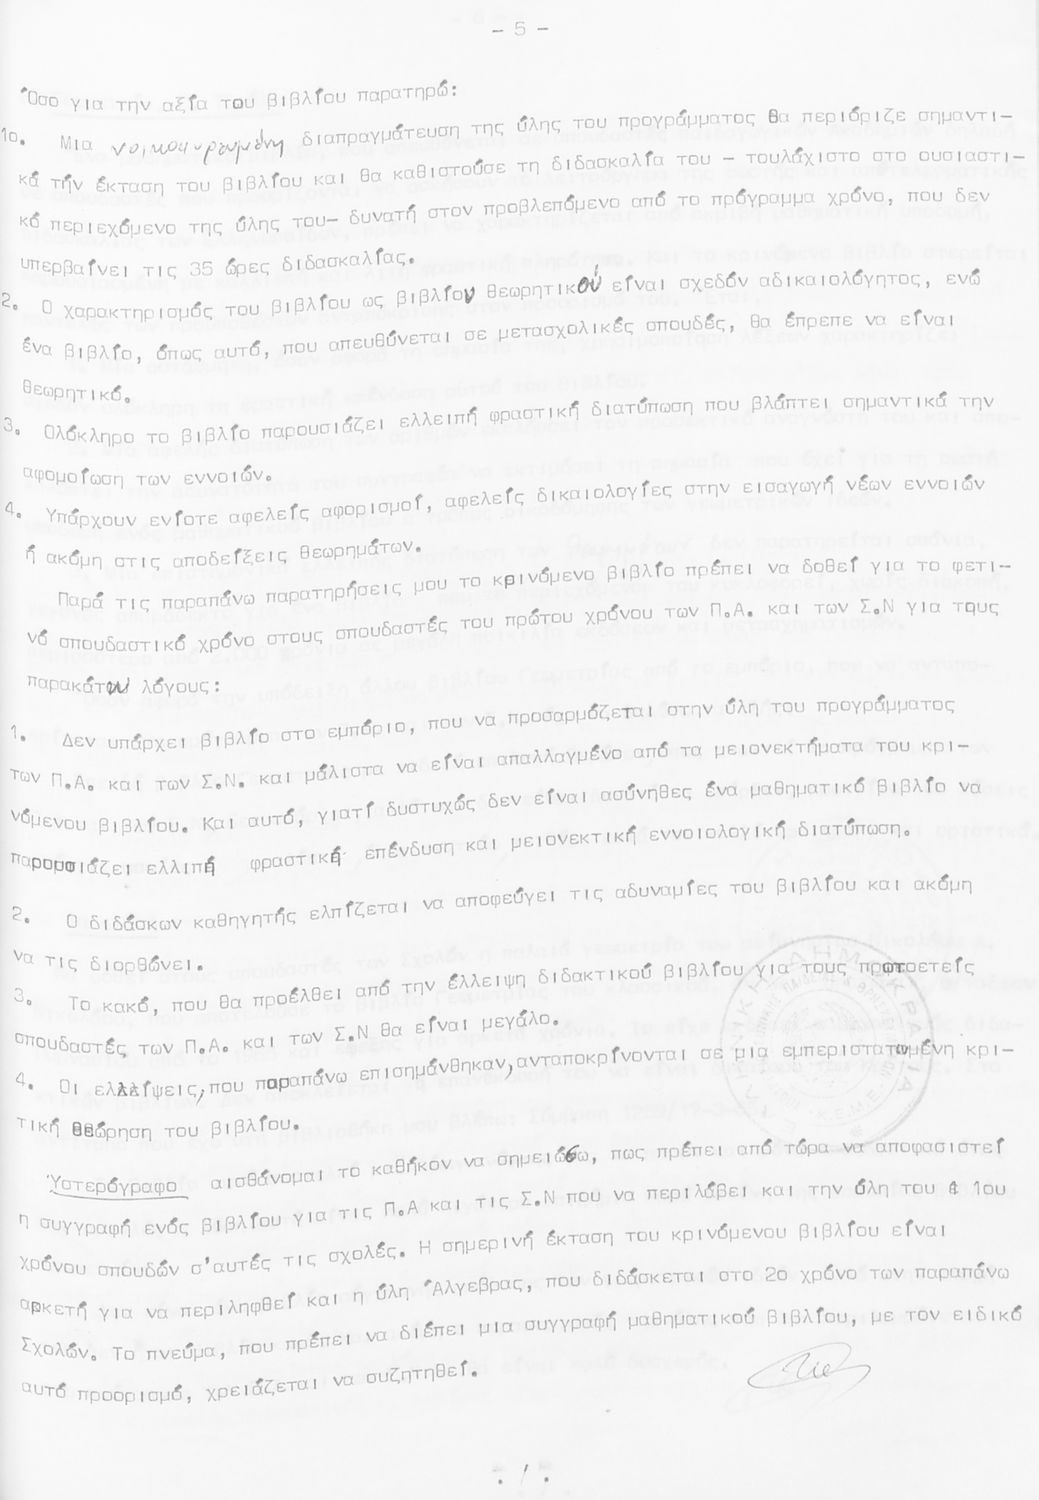 - 5 -
Όσο για την αξία του βιβλίου παρατηρώ:
1ο. Μια νοικοκυρεμένη διαπραγμάτευση της ύλης του προγράμματος θα περιόριζε σημαντι-
κά τήν έκταση του βιβλίου και θα καθιστούσε τη διδασκαλία του - τουλάχιστο στο ουσιαστι-
κό περιεχόμενο της ύλης του- δυνατή στον προβλεπόμενο από το πρόγραμμα χρόνο, που δεν
υπερβαίνει τις 35 ώρες διδασκαλίας.
2. Ο χαρακτηρισμός του βιβλίου ως βιβλίου θεωρητικού είναι σχεδόν αδικαιολόγητος, ενώ
ένα βιβλίο, όπως αυτό, που απευθύνεται σε μετασχολικές σπουδές, θα έπρεπε να είναι
θεωρητικό.
3. Ολόκληρο το βιβλίο παρουσιάζει ελλειπή φραστική διατύπωση που βλάπτει σημαντικά την
αφομοίωση των εννοιών.
4. Υπάρχουν ενίοτε αφελείς αφορισμοί, αφελείς δικαιολογίες στην εισαγωγή νέων εννοιών
ή ακόμη στις αποδείξεις θεωρημάτων.
Παρά τις παραπάνω παρατηρήσεις μου το κρινόμενο βιβλίο πρέπει να δοθεί για το φετι-
νό σπουδαστικό χρόνο στους σπουδαστές του πρώτου χρόνου των Π.Α. και των Σ.Ν για τους
παρακάτω λόγους:
1. Δεν υπάρχει βιβλίο στο εμπόριο, που να προσαρμόζεται στην ύλη του προγράμματος
των Π.Α. και των Σ.Ν. και μάλιστα να είναι απαλλαγμένο από τα μειονεκτήματα του κρι-
νόμενου βιβλίου. Και αυτό, γιατί δυστυχώς δεν είναι ασύνηθες ένα μαθηματικό βιβλίο να
παρουσιάζει ελλιπή φραστική επένδυση και μειονεκτική εννοιολογική διατύπωση.
2. Ο διδάσκων καθηγητής ελπίζεται να αποφεύγει τις αδυναμίες του βιβλίου και ακόμη
να τις διορθώνει.
3. Το κακό, που θα προέλθει από την έλλειψη διδακτικού βιβλίου για τους πρωτοετείς
σπουδαστές των Π.Α. και των Σ.Ν θα είναι μεγάλο.
4. Οι ελλείψεις, που παραπάνω επισημάνθηκαν, ανταποκρίνονται σε μια εμπεριστατωμένη κρι-
τική θεώρηση του βιβλίου.
Υστερόγραφο αισθάνομαι το καθήκον να σημειώσω, πως πρέπει από τώρα να αποφασιστεί
η συγγραφή ενός βιβλίου για τις Π.Α και τις Σ.Ν που να περιλάβει και την ύλη του 1ου
χρόνου σπουδών σ'αυτές τις σχολές. Η σημερινή έκταση του κρινόμενου βιβλίου είναι
αρκετή για να περιληφθεί και η ύλη Άλγεβρας, που διδάσκεται στο 2ο χρόνο των παραπάνω
Σχολών. Το πνεύμα, που πρέπει να διέπει μια συγγραφή μαθηματικού βιβλίου, με τον ειδικό
αυτό προορισμό, χρειάζεται να συζητηθεί.
ΕΛΛΗΝΙΚΗ ΔΗΜΟΚΡΑΤΙΑ
Κ.Ε.Μ.Ε.
./.